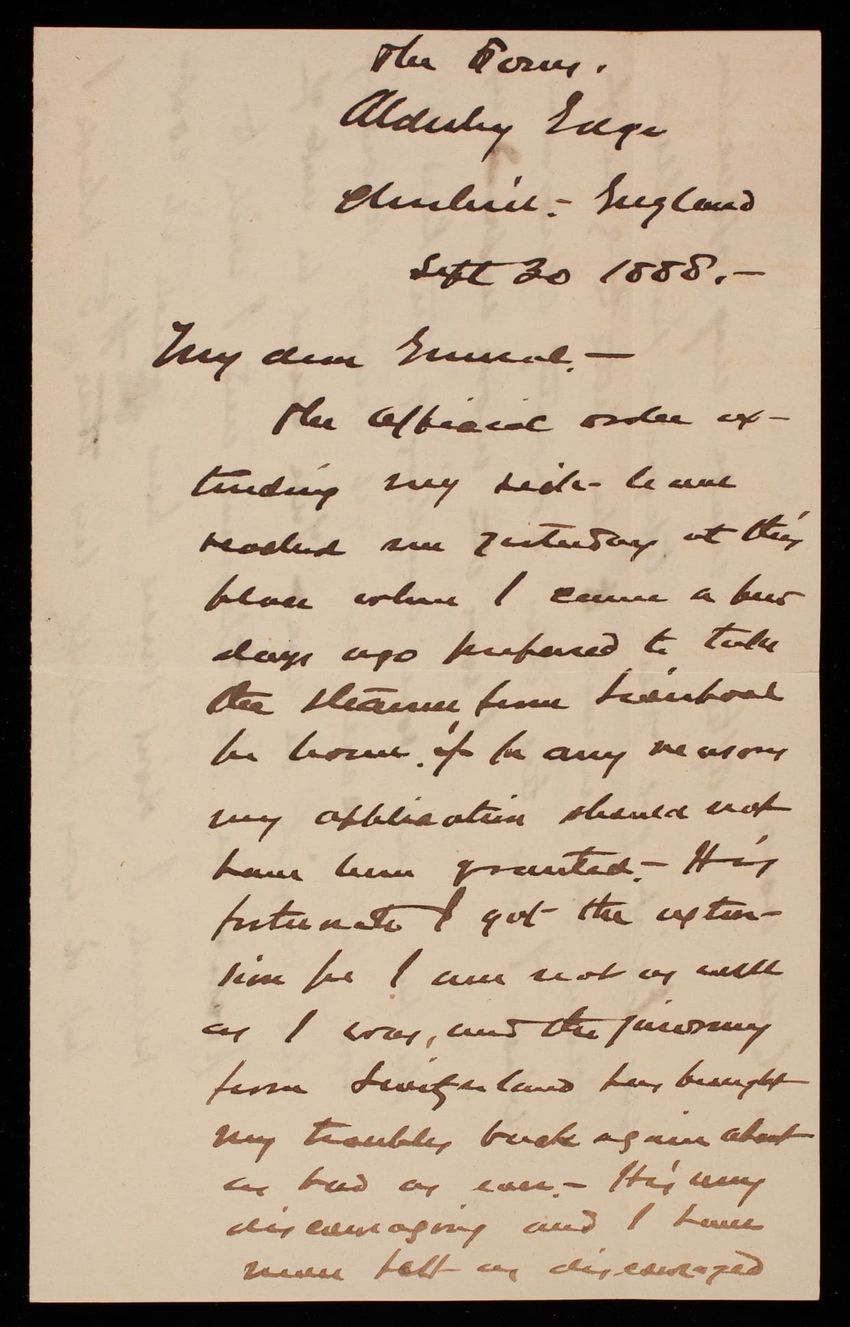 The Towers.
Alderley Edge
Cheshire. - England
Sept 30 1888. -
My dear General. -
The official order ex-
tending my sick-leave
reached me yesterday at this
place where I came a few
days ago prepared to take
the steamer from Liverpool
for home, if for any reasons
my application should not
have been granted. - It is
fortunate I got the exten-
sion for I am not as well
as I was, and the journey
from Switzerland has brought
my troubles back again about
as bad as ever. - It is very
discouraging and I have
never felt as discouraged